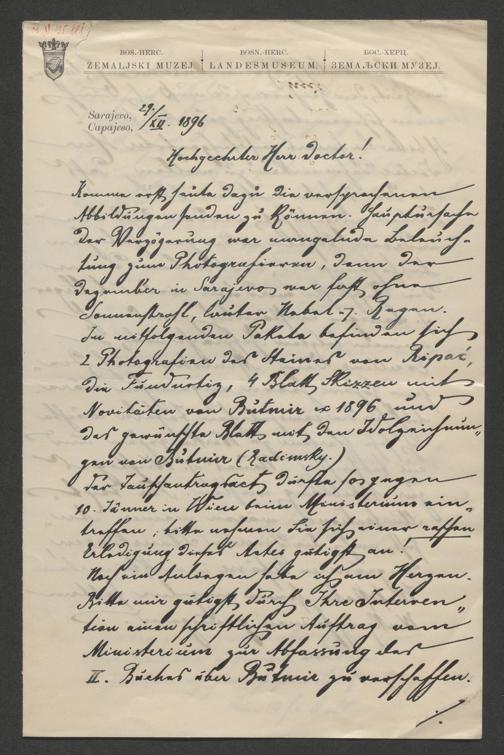 BOS.-HERC.
ZEMALJSKI MUZEJ
BOSN.-HERC.
LANDESMUSEUM.
БОС.-ХЕРЦ.
ЗЕМАЉСКИ МУЗЕЈ.
Sarajevo, 29./XII. 1896
Сарајево,
Hochgeehrter Herr Doctor!
Komme erst heute dazu die versprochenen
Abbildungen senden zu können. Hauptursache
der Verzögerung war mangelnde Beleuch-
tung zum Photografieren, denn der
Dezember in Sarajevo war fast ohne
Sonnenstrahl, lauter Nebel u. Regen.
Im mitfolgenden Pakete befinden sich
2 Photografien des Steines von Ripač,
die Fundnotiz, 4 Blatt Skizzen mit
Novitäten von Butmir ex 1896 und
das gewünschte Blatt mit den Idolzeichnun-
gen von Butmir (Radimsky.)
Der Tauschantragsact dürfte so gegen
10. Jänner in Wien beim Ministerium ein-
treffen, bitte nehmen Sie sich einer raschen
Erledigung dieses Actes gütigst an.
Noch ein Anliegen habe ich am Herzen.
Bitte mir gütigst durch Ihre Interven-
tion einen schriftlichen Auftrag vom
Ministerium zur Abfassung des
II. Buches über Butmir zu verschaffen.